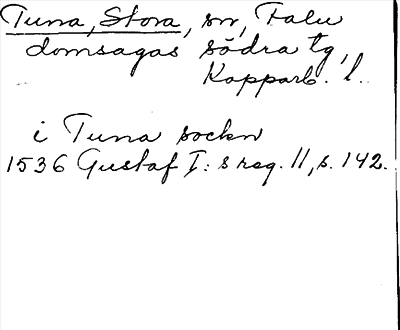 Tuna, Stora, sn, Falu
domsagas södra tg,
Kopparb. l.
i Tuna sockn
1536 Gustaf I: s reg. 11, s. 142.